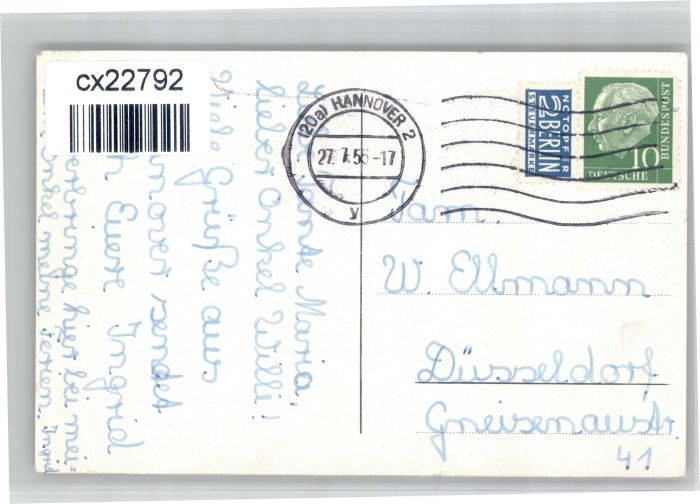 cx22792
(20a) HANNOVER 2
27. 7. 55 -17
y
NOTOPFER
2 BERLIN
STEUERMARKE
10
DEUTSCHE
BUNDESPOST
Fam.
W. Ellmann
Düsseldorf
Gneisenaustr.
41
Liebe Tante Maria,
lieber Onkel Willi!
Viele Grüße aus
sendet
Eure Ingrid
bei mei
Onkel meine Ingrid